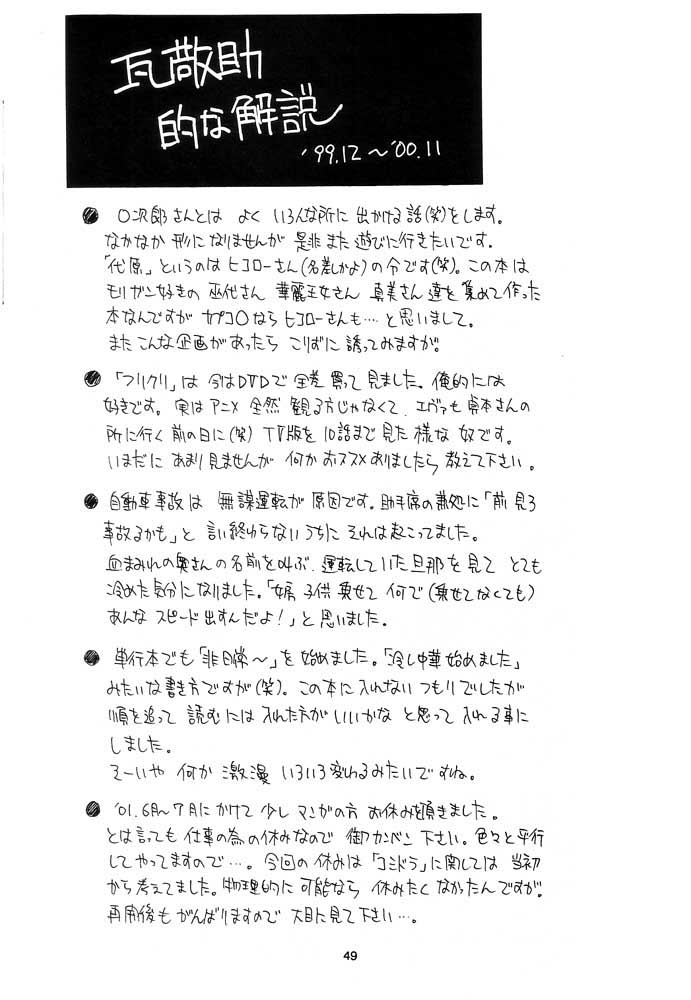 瓦敬助
的な解説
'99.12～'00.11
●〇次郎さんとは よく いろんな所に 出かける話(笑)をします。
なかなか 形になりませんが 是非 また 遊びに行きたいです。
「代原」というのは ヒコローさん(名差しかよ)の今です(笑)。この本は
モリガン好きの 巫代さん 華麗王女さん 真美さん達を 集めて作った
本なんですが カプコ〇なら ヒコローさんも…と思いまして。
また こんな企画があったら こりずに誘ってみますが。
●「フリクリ」は 今はDVDで 全差 買って見ました。俺的には
好きです。実は アニメ 全然 観る方じゃなくて、エヴァも 貞本さんの
所に行く 前の日に(笑) TV版を 10話まで見た 様な 奴です。
いまだに あまり見ませんが 何か おススメありましたら 教えて下さい。
●自動車事故は 無謀運転が 原因です。助手席の 「前見ろ
事故るかも」と 言い終わらないうちに それは起こってました。
血まみれの奥さんの名前を叫ぶ、運転していた旦那を見て とても
冷めた気分になりました。「女房 子供 乗せて 何で(乗せてなくても)
あんな スピード出すんだよ!」と 思いました。
●単行本でも「非日常～」を 始めました。「冷し中華 始めました」
みたいな書き方ですが(笑)。この本に入れない つもりでしたが
順を追って 読むには 入れた方が いいかな と思って 入れる事に
しました。
そーいや 何か 激漫 いろいろ変わるみたいですね。
●'01.6月～7月にかけて 少し マンガの方 お休みを頂きました。
とは言っても 仕事の為の休みなので 御カンベン 下さい。色々と平行
してやってますので…。今回の休みは「コミドラ」に関しては 当初
から考えてました。物理的に 可能なら 休みたく なかったんですが。
再開後も がんばりますので 大目に見て下さい…。
49